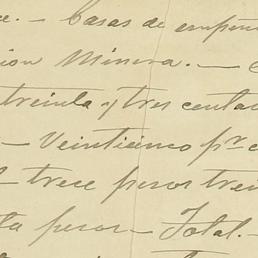 ce. — Casas de empeñ
ion Minera. —
treinta y tres centa
— Veinticinco pr c
— trece pesos trei
ta pesos — Total. —